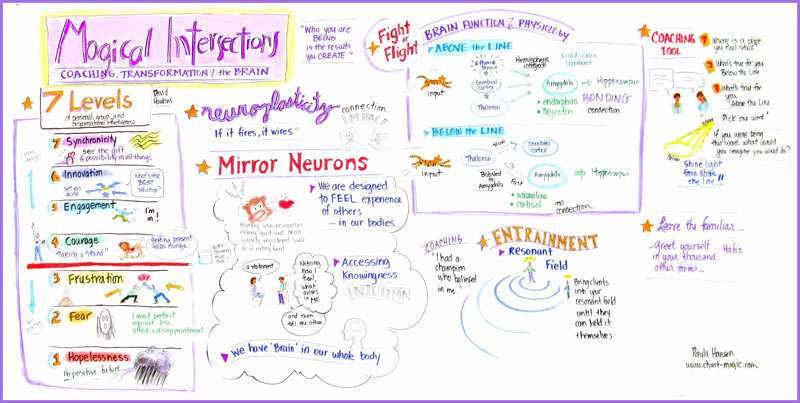 Magical Intersections
COACHING, TRANSFORMATION & the BRAIN
"Who you are
BEING
is the results
you CREATE"
7 Levels
David
Hawkins
of personal, group, and
organizational effectiveness
7 Synchronicity
see the gift
& possibility in all things.
6 Innovation
What's the
BEST
solution?
5 Engagement
I'm in!
4 Courage
"Taking a Stand"
getting present
takes courage
3 Frustration
2 Fear
I must protect
against loss,
attack & disappointment
1 Hopelessness
no positive future
neuroplasticity
"If it fires, it wires"
connection
IMPACT
Mirror Neurons
We are designed
to FEEL experience
of others
in our bodies
a statement
Noticing
how I
feel,
what
arises in
ME
and then
tell the other
Accessing
Knowingness
INTUITION
We have 'Brain' in our whole body
Fight or Flight
BRAIN FUNCTION & PHYSIOLOGY
ABOVE the LINE
input
Cerebral
cortex
Thalamus
Hemispheres
integrate
Amygdala
Hippocampus
endorphins
oxytocin
BONDING
connection
BELOW the LINE
input
Thalamus
Slow
Cerebral
cortex
Bobsled
to
Amygdala
Fast
Amygdala
Hippocampus
adrenaline
cortisol
no
connection
COACHING
"I had a
champion
who believed
in me."
ENTRAINMENT
Resonant
Field
Bring clients
into your
resonant field
until they
can hold it
themselves
COACHING
TOOL
1 Where is a place
you feel stuck?
2 What's true for you
Below the Line
3 What's true for
you
Above the Line
Pick one word
If you were being
this word, what could
you imagine you would do?
"Shine light
from above
the line"
Leave the familiar...
Greet yourself
in your thousand
other forms...
Hafiz
Paula Hansen
www.chart-magic.com